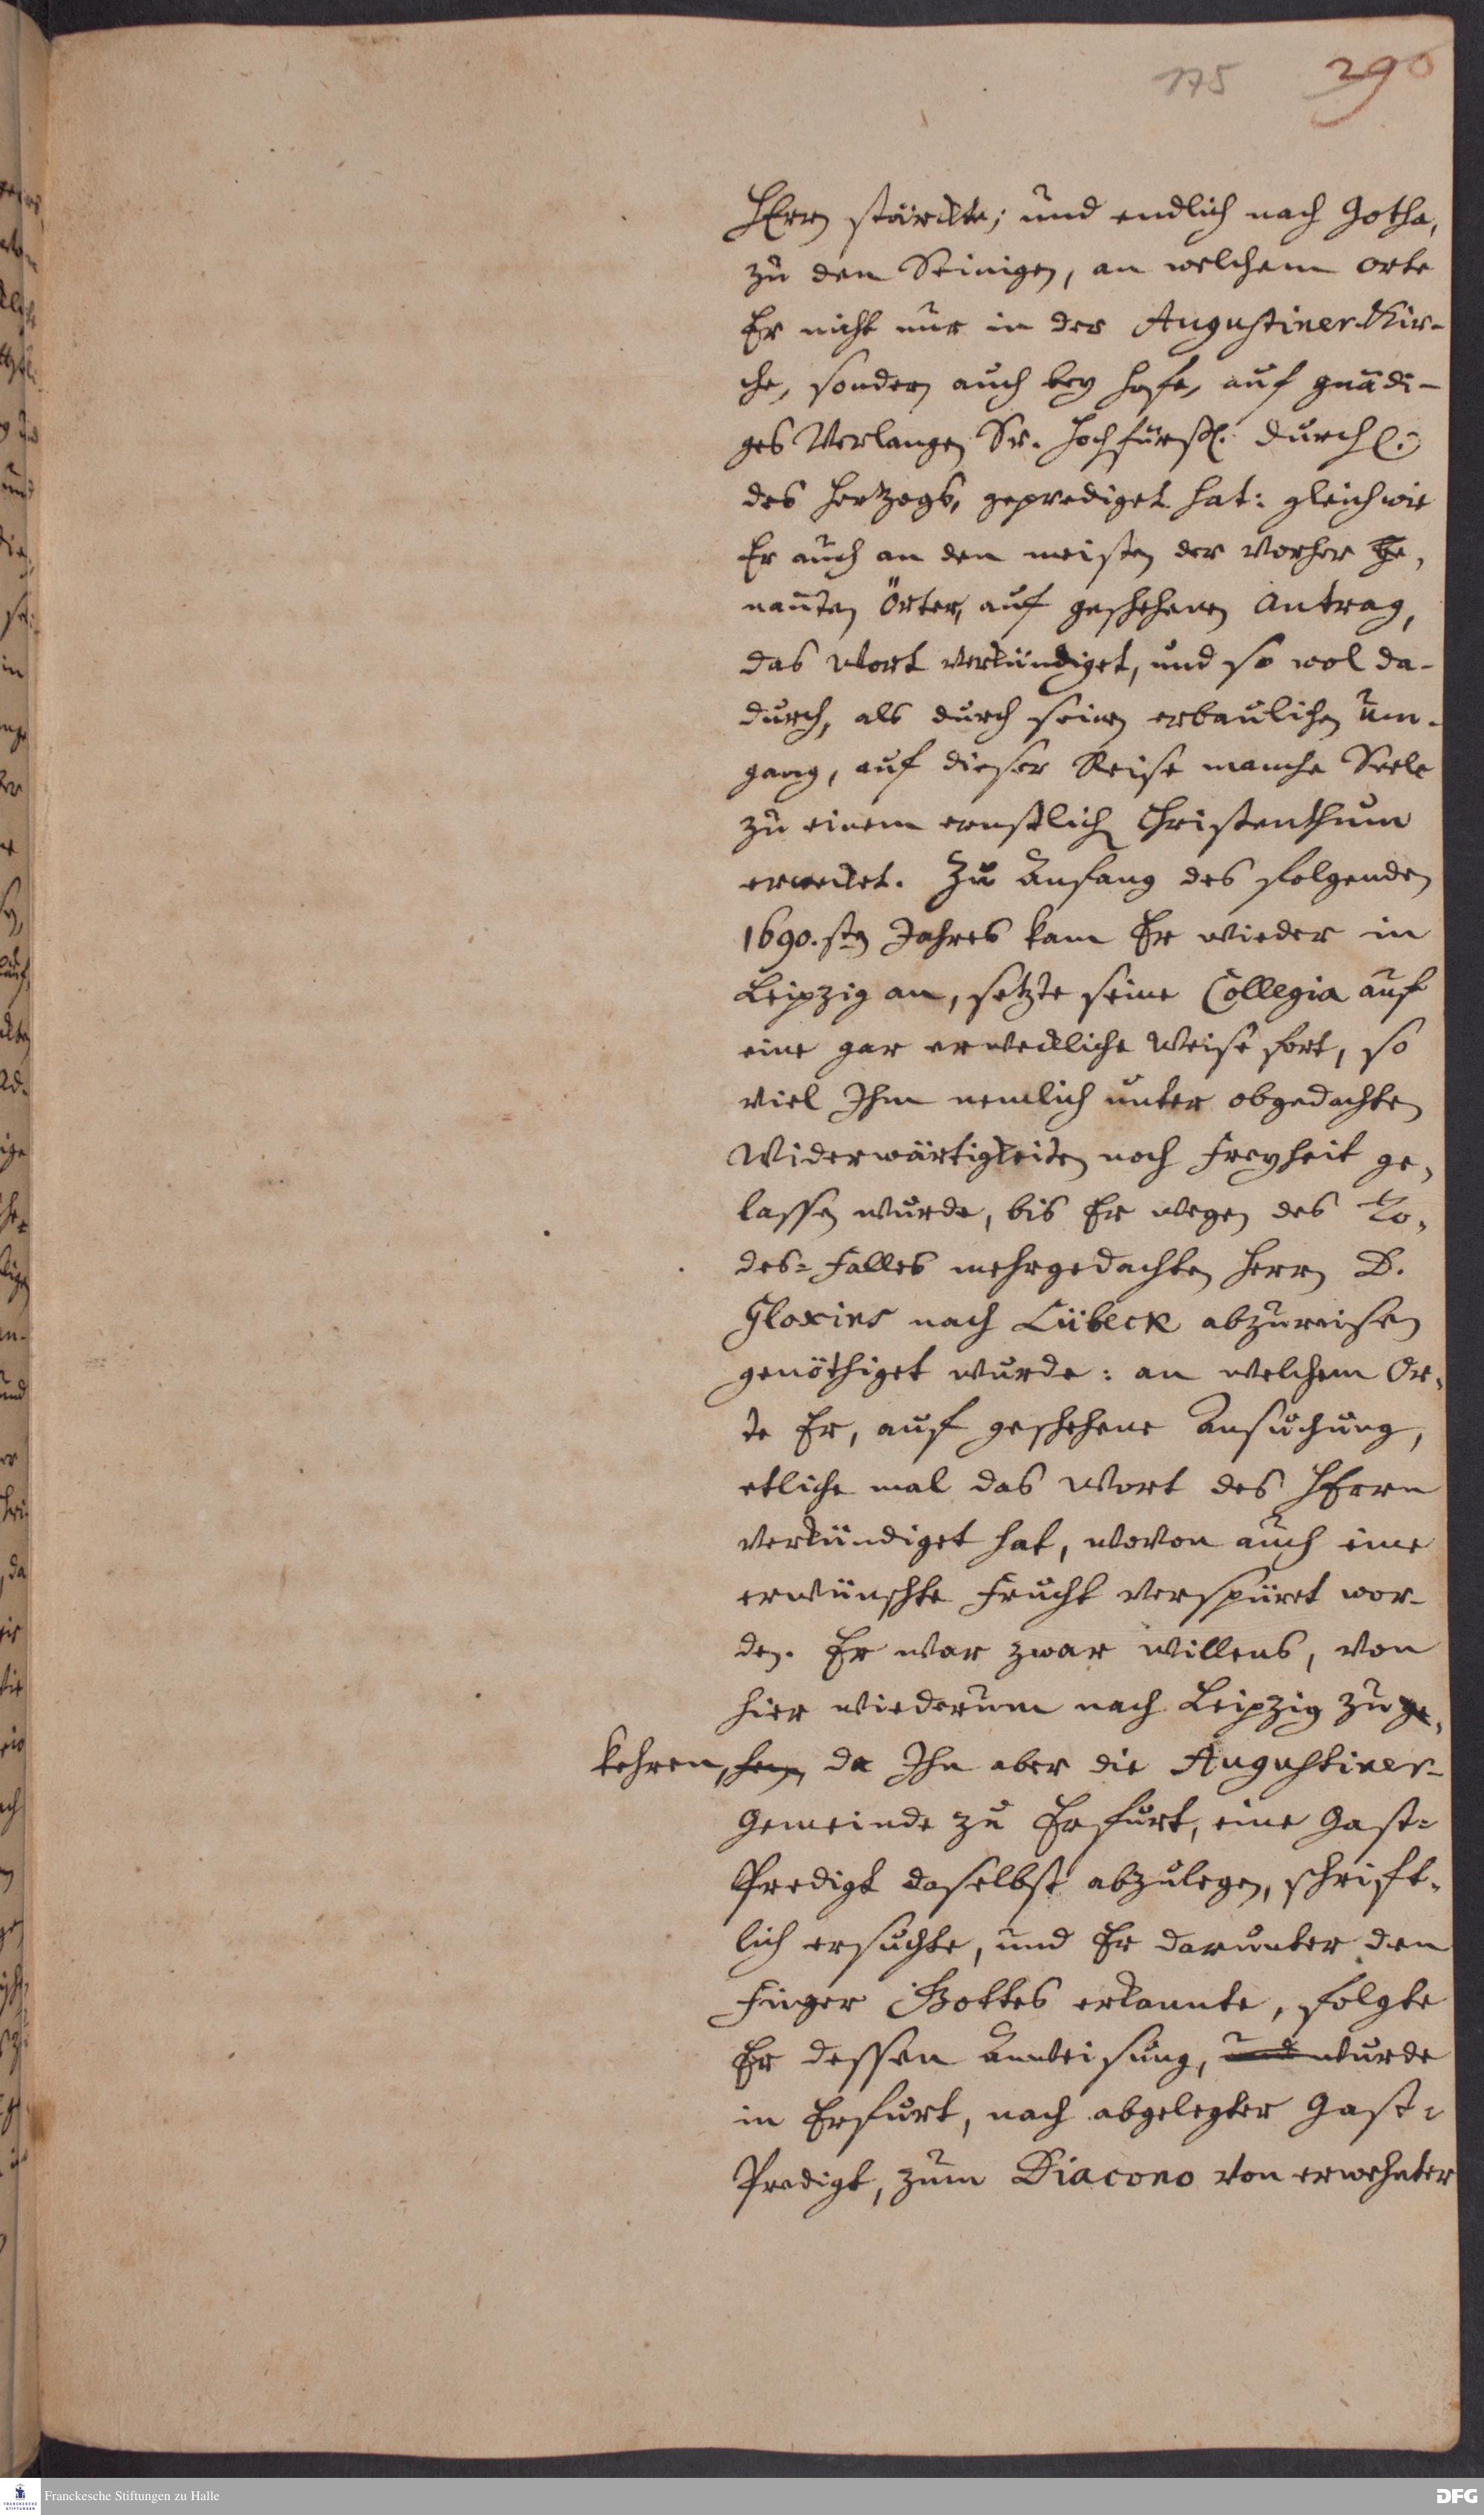 175 290
HErrn stärckte; und endlich nach Gotha,
zu den Seinigen, an welchem Orte
Er nicht nur in der Augustiner-Kir-
che, sondern auch bey Hofe, auf gnädi-
ges Verlangen Sr. Hochfürstl. Durchl.
des Hertzogs, geprediget hat: gleichwie
Er auch an den meisten der vorher ge-
nannten Örter, auf geschehenen Antrag,
das Wort verkündiget, und so wol da-
durch, als durch seinen erbaulichen Um-
gang, auf dieser Reise manche Seele
zu einem ernstlich Christenthum
erwecket. Zu Anfang des folgenden
1690.sten Jahres kam Er wieder in
Leipzig an, setzte seine Collegia auf
eine gar erweckliche Weise fort, so
viel Ihm nemlich unter obgedachten
Widerwärtigkeiten noch Freyheit ge-
lassen wurde, bis Er wegen des To-
des-Falles mehrgedachten Herrn D.
Gloxins nach Lübeck abzureisen
genöthiget wurde: an welchem Or-
te Er, auf geschehene Ansuchung,
etliche mal das Wort des HErrn
verkündiget hat, wovon auch eine
erwünschte Frucht verspüret wor-
den. Er war zwar willens, von
hier wiederum nach Leipzig zu ge-
kehren, hen, da Ihn aber die Augustiner-
Gemeinde zu Erfurt, eine Gast-
Predigt daselbst abzulegen, schrift-
lich ersuchte, und Er darunter den
Finger Gottes erkannte, folgte
Er dessen Anweisung, und wurde
in Erfurt, nach abgelegter Gast-
Predigt, zum Diacono von erwehnter
Franckesche Stiftungen zu Halle
DFG